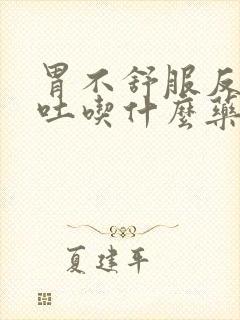 胃不舒服反
吐喫什麼藥
夏建平